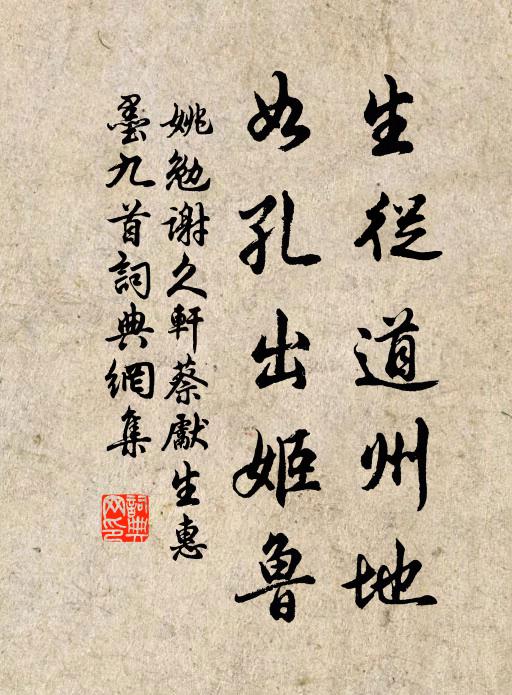 生從道州地
如孔出姬魯
姚勉謝久軒蔡獻生惠
墨九首詞典網集
詞典網印